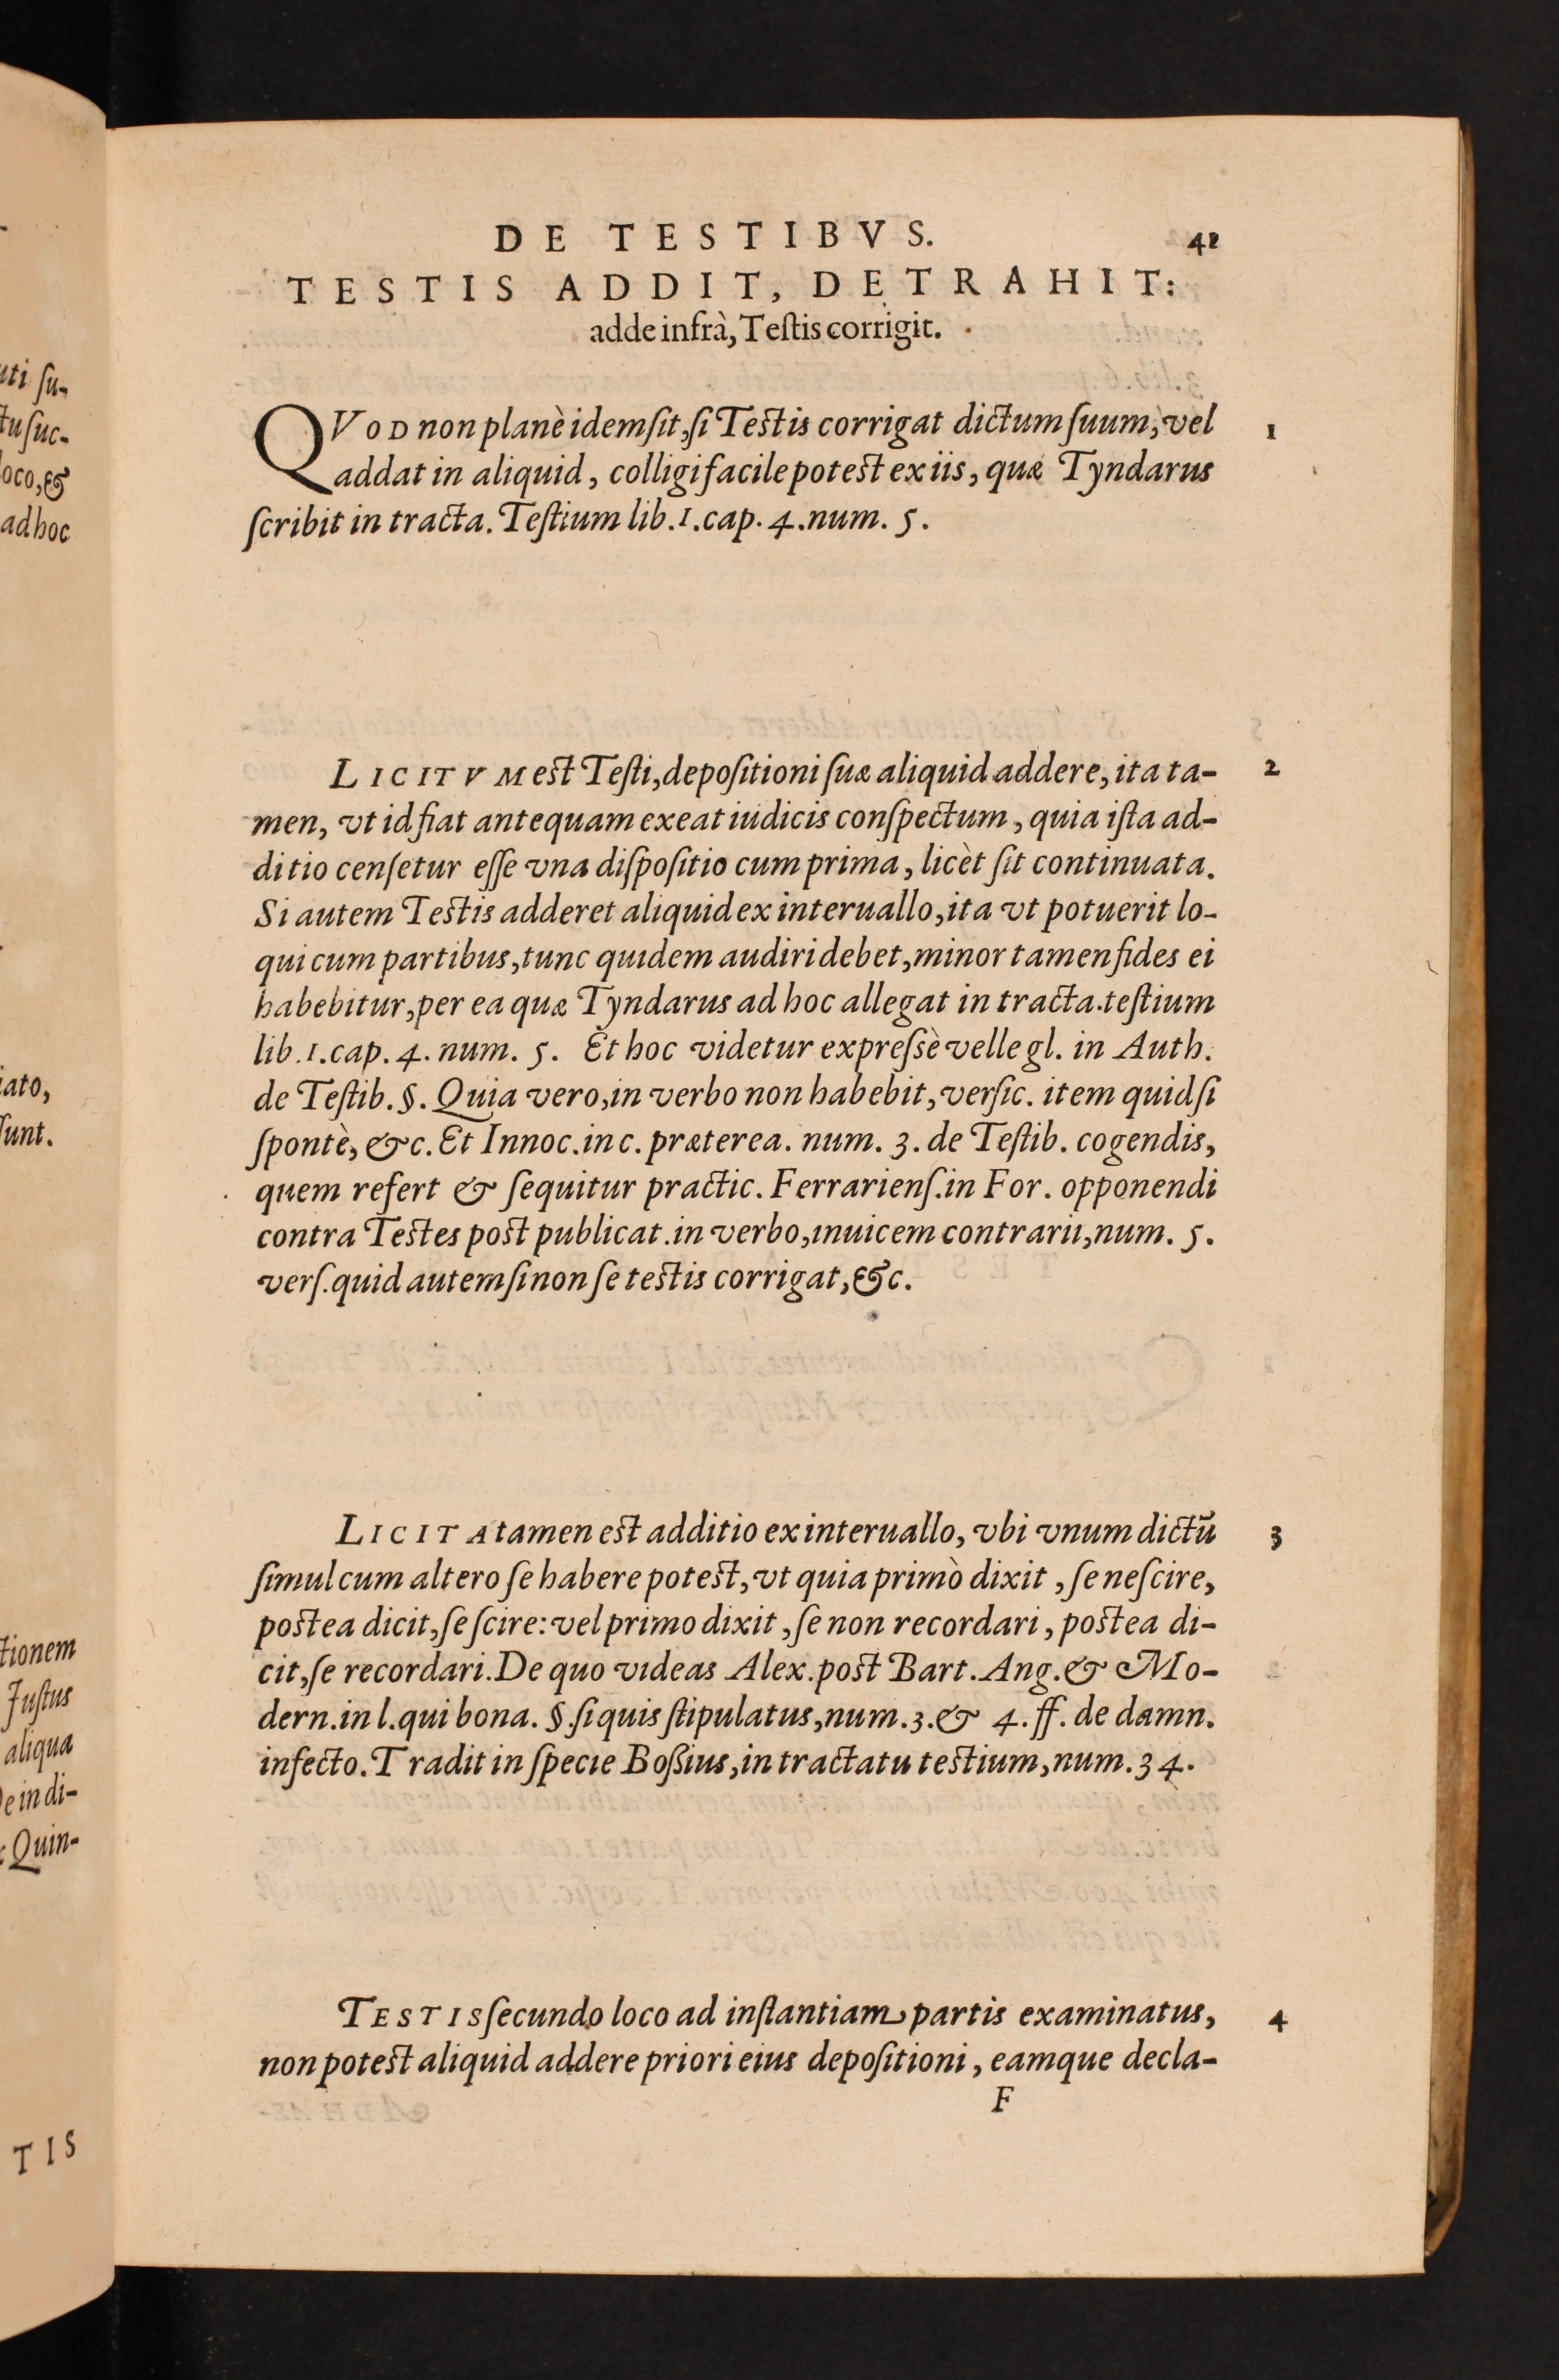 uti ſu-
tu ſuc-
loco, &
ad hoc
iato,
ſunt.
tionem
Juſtus
aliqua
De in di-
Quin-
TIS
DE TESTIBVS. 41
TESTIS ADDIT, DETRAHIT:
adde infrà, Teſtis corrigit.
QVOD non planè idem ſit, ſi Teſtis corrigat dictum ſuum, vel 1
addat in aliquid, colligi facile poteſt ex iis, quæ Tyndarus
ſcribit in tracta. Teſtium lib. 1. cap. 4. num. 5.
LICITVM eſt Teſti, depoſitioni ſuæ aliquid addere, ita ta- 2
men, vt id fiat antequam exeat iudicis conſpectum, quia iſta ad-
ditio cenſetur eſſe vna diſpoſitio cum prima, licèt ſit continuata.
Si autem Teſtis adderet aliquid ex interuallo, ita vt potuerit lo-
qui cum partibus, tunc quidem audiri debet, minor tamen fides ei
habebitur, per ea quæ Tyndarus ad hoc allegat in tracta. teſtium
lib. 1. cap. 4. num. 5. Et hoc videtur expreſsè velle gl. in Auth.
de Teſtib. §. Quia vero, in verbo non habebit, verſic. item quid ſi
ſpontè, &c. Et Innoc. in c. præterea. num. 3. de Teſtib. cogendis,
quem refert & ſequitur practic. Ferrarienſ. in For. opponendi
contra Teſtes poſt publicat. in verbo, inuicem contrarii, num. 5.
verſ. quid autem ſi non ſe teſtis corrigat, &c.
LICITA tamen eſt additio ex interuallo, vbi vnum dictũ 3
ſimul cum altero ſe habere poteſt, vt quia primò dixit, ſe neſcire,
poſtea dicit, ſe ſcire: vel primo dixit, ſe non recordari, poſtea di-
cit, ſe recordari. De quo videas Alex. poſt Bart. Ang. & Mo-
dern. in l. qui bona. §. ſi quis ſtipulatus, num. 3. & 4. ff. de damn.
infecto. Tradit in ſpecie Boßius, in tractatu teſtium, num. 34.
TESTIS ſecundo loco ad inſtantiam partis examinatus, 4
non poteſt aliquid addere priori eius depoſitioni, eamque decla-
F